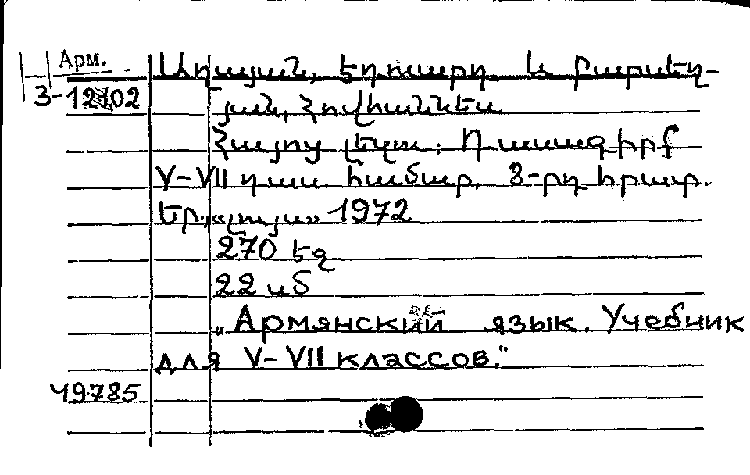 Арм.
Աղայան, Էդուարդ և Բարսեղ-
3-12702
յան, Հովհաննես
Հայոց լեզու: Դասագիրք
V-VII դաս համար. 8-րդ հրատ.
Եր. «Լույս» 1972
270 եջ
22 սմ
"Армянский язык. Учебник
для V-VII классов."
49785